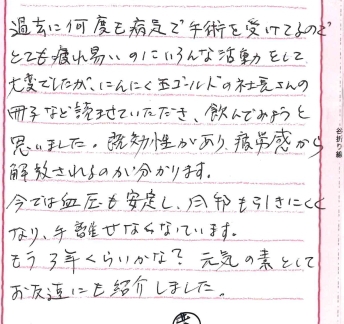 過去に何度も病足で手術を受けてるので
とても疲れ易いのにいろんな活動をして
大変でしたが、にんにく玉ゴールドの社長さんの
冊子など読ませていただき、飲んでみようと
思いました。既効性があり、疲労感から
解放されるのが分かります。
今では血圧も安定し、風邪も引きにくく
なり、手離せなくなっています。
もう3年くらいかな？ 元気の素として
お友達にも紹介しました。
谷折り線